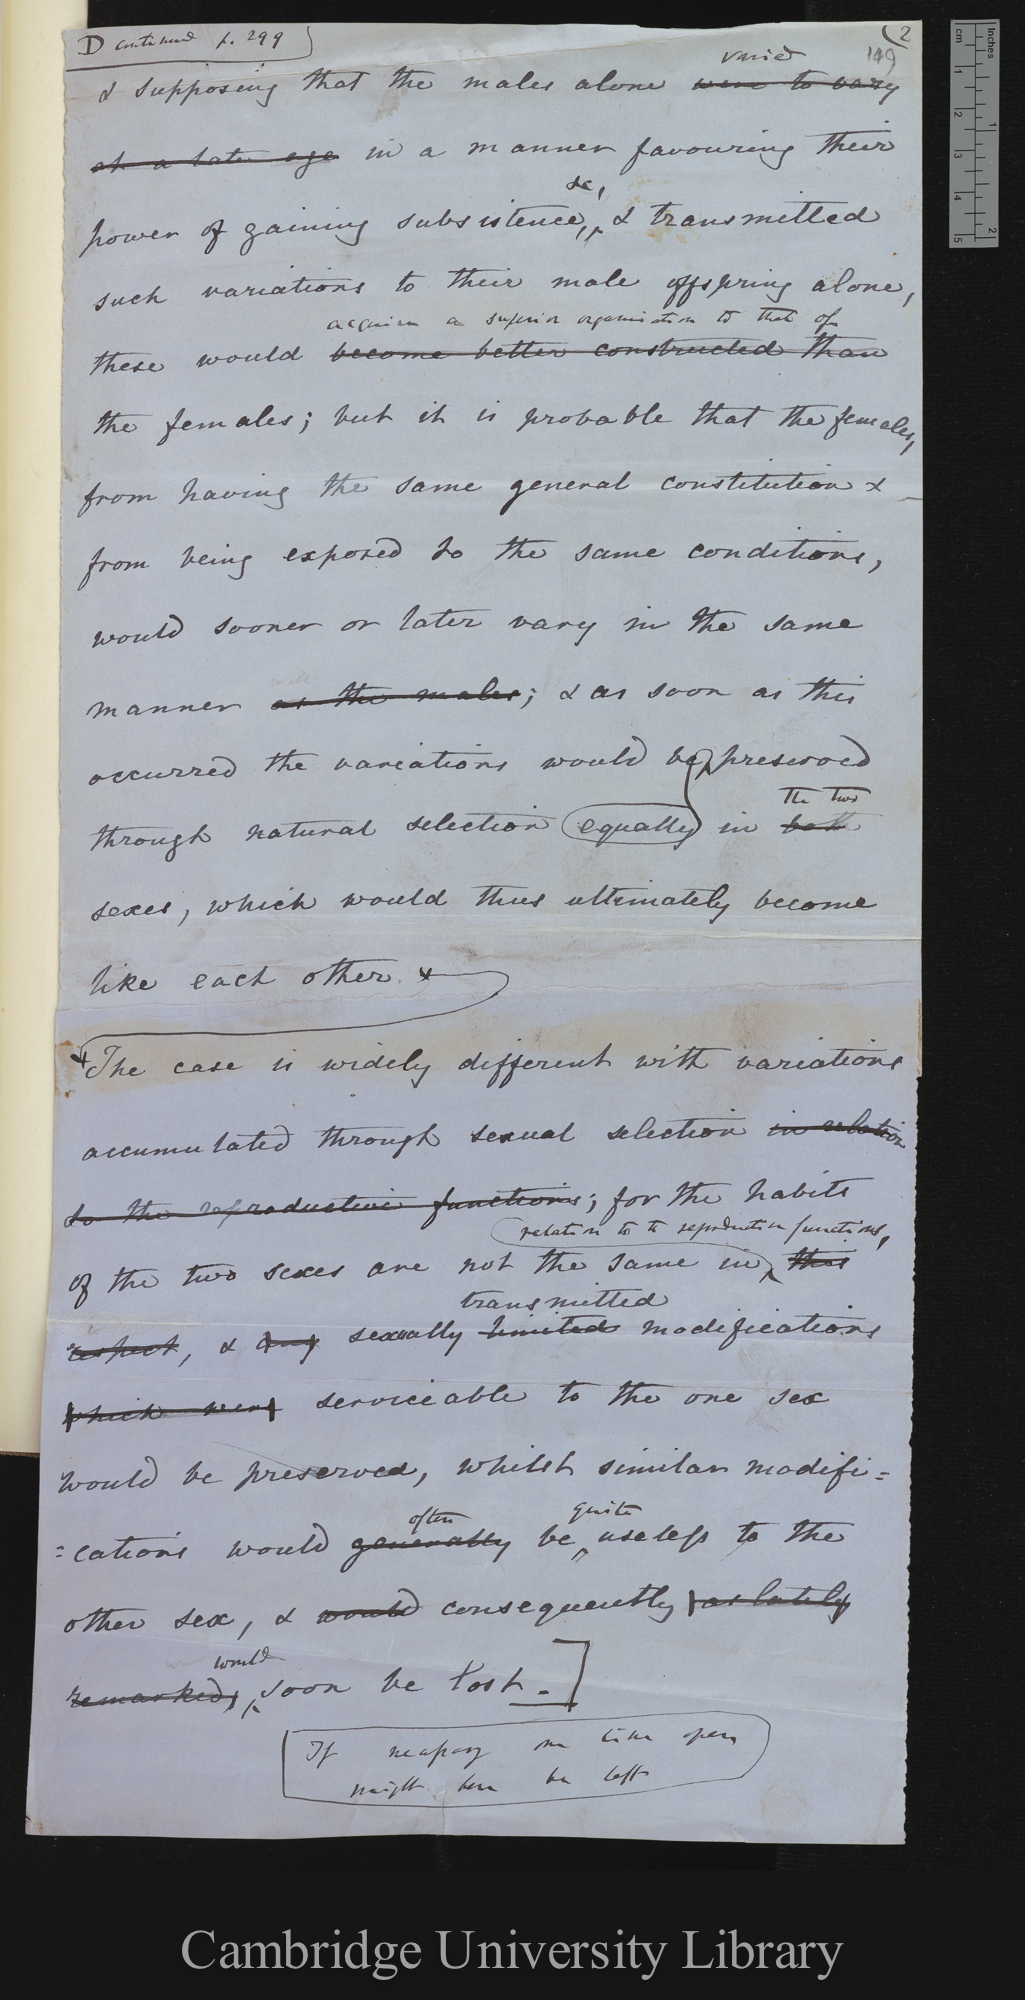 D continued p. 299
(2
149
varied
& supposing that the males alone were to vary
at a later age in a manner favouring their
&c,
power of gaining subsistence, & transmitted
such variations to their male offspring alone,
acquire a superior organisation to that of
these would become better constructed than
the females; but it is probable that the females,
from having the same general constitution &
from being exposed to the same conditions,
would sooner or later vary in the same
manner as the males; & as soon as this
occurred the variations would be preserved
the two
through natural selection equally in both
sexes, which would thus ultimately become
like each other.
The case is widely different with variations
accumulated through sexual selection in relation
to the reproductive functions; for the habits
relation to the reproductive functions,
of the two sexes are not the same in this
transmitted
respect, & any sexually limited modifications
which were serviceable to the one sex
would be preserved, whilst similar modifi=
often quite
=cations would generally be useless to the
other sex, & would consequently as lately
would
remarked, soon be lost.]
If necessary one line open
might here be left
cm
1
2
3
4
5
Inches
1
2
Cambridge University Library